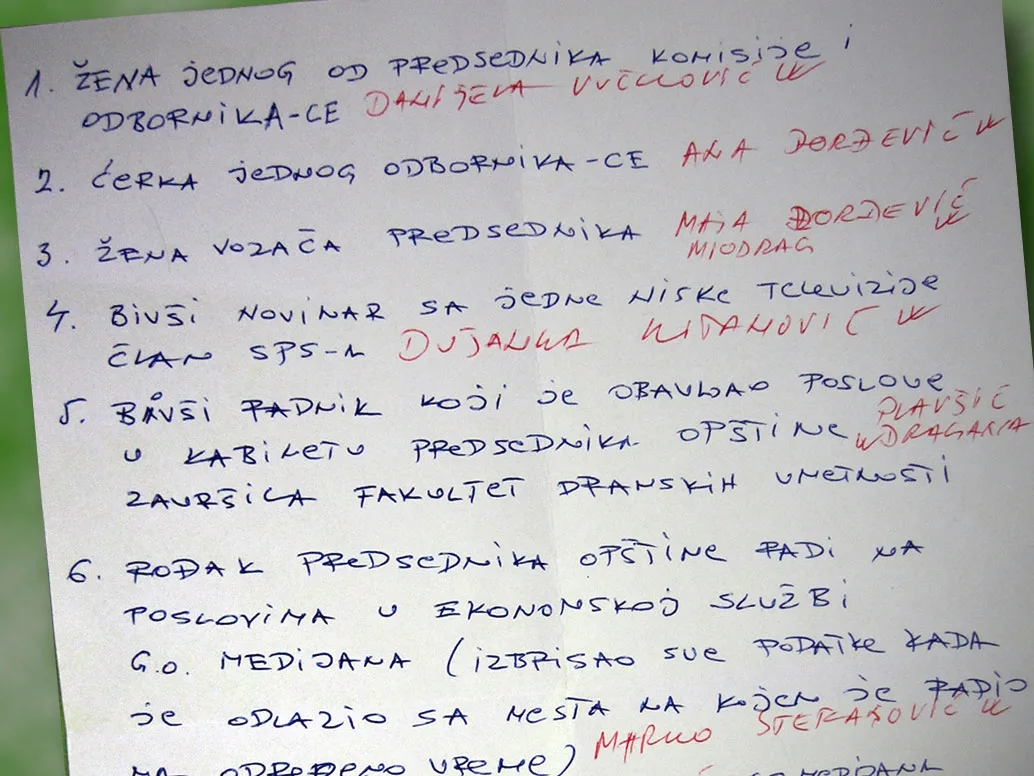 1. ŽENA jEDNOG OD PREDSEDNIKA KOMISIjE i
ODBORNIKA-CE DANIJELA VUČKOVIĆ
2. ĆERKA jEDNOG ODBORNIKA-CE ANA ĐORĐEVIĆ
3. ŽENA VOZAČA PREDSEDNIKA MAjA ĐORĐEVIĆ
MIODRAG
4. BIVŠI NOVINAR SA jEDNE NIŠKE TELEVIZIjE
ČLAN SPS-A DUŠANKA
5. BIVŠI RADNIK KOJI jE OBAVLJAO POSLOVE
U KABINETU PREDSEDNIKA OPŠTINE PLAVŠIĆ
DRAGANA
ZAVRŠILA FAKULTET DRAMSKIH UMETNOSTI
6. ROĐAK PREDSEDNIKA OPŠTINE RADI NA
POSLOVIMA U EKONOMSKOJ SLUŽBI
G.O. MEDIJANA (IZBRISAO SVE PODATKE KADA
jE ODLAZIO SA MESTA NA KOjEM jE RADIO
NA ODREĐENO VREME) MARKO STEFANOVIĆ
MEDIJANA